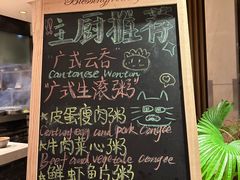 主厨推荐
"广式云吞"
Cantonese Wonton
"广式生滚粥"
★皮蛋瘦肉粥
Century egg and pork Congee
★牛肉菜心粥
Beef and vegetable congee
★鲜虾鱼片粥